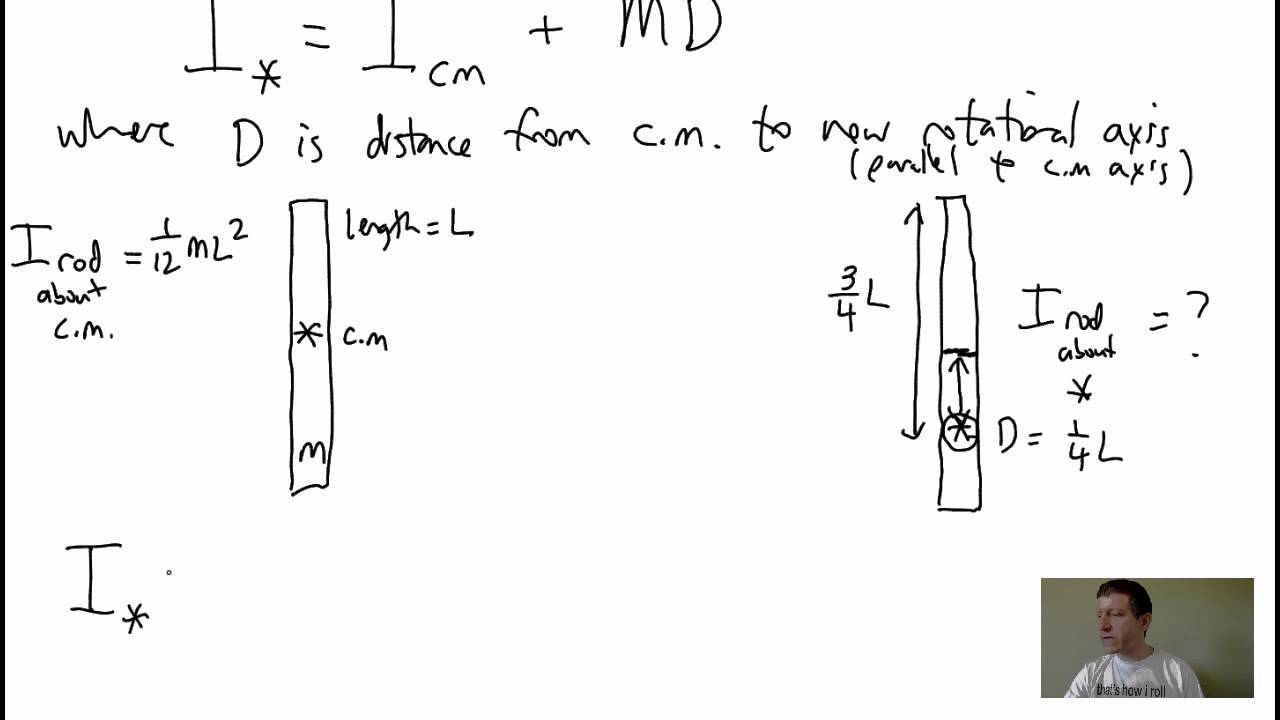 I* = Icm + MD
where D is distance from c.m. to new rotational axis
(parallel to c.m axis)
I rod about c.m. = 1/12 mL²
length = L
c.m
m
3/4 L
*
D = 1/4 L
I rod about * = ?
I*
that's how i roll